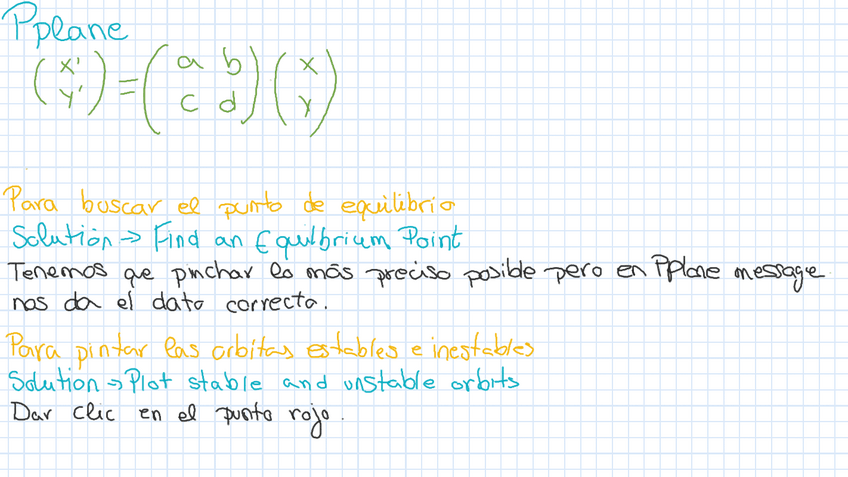 Pplane
(x' y') = (a b c d) (x y)
Para buscar el punto de equilibrio
Solution → Find an Equilbrium Point
Tenemos que pinchar lo más preciso posible pero en Pplane message
nos da el dato correcto.
Para pintar las orbitas estables e inestables
Solution → Plot stable and unstable orbits
Dar clic en el punto rojo.